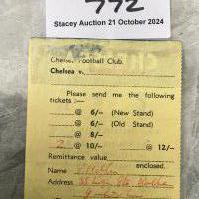 772
Stacey Auction 21 October 2024
Chelsea Football Club.
Chelsea v.
Please send me the following
tickets :—
@ 6/- (New Stand)
@ 6/- (Old Stand)
@ 8/-
2 @ 10/- @ 12/-
Remittance value enclosed.
Name
Address